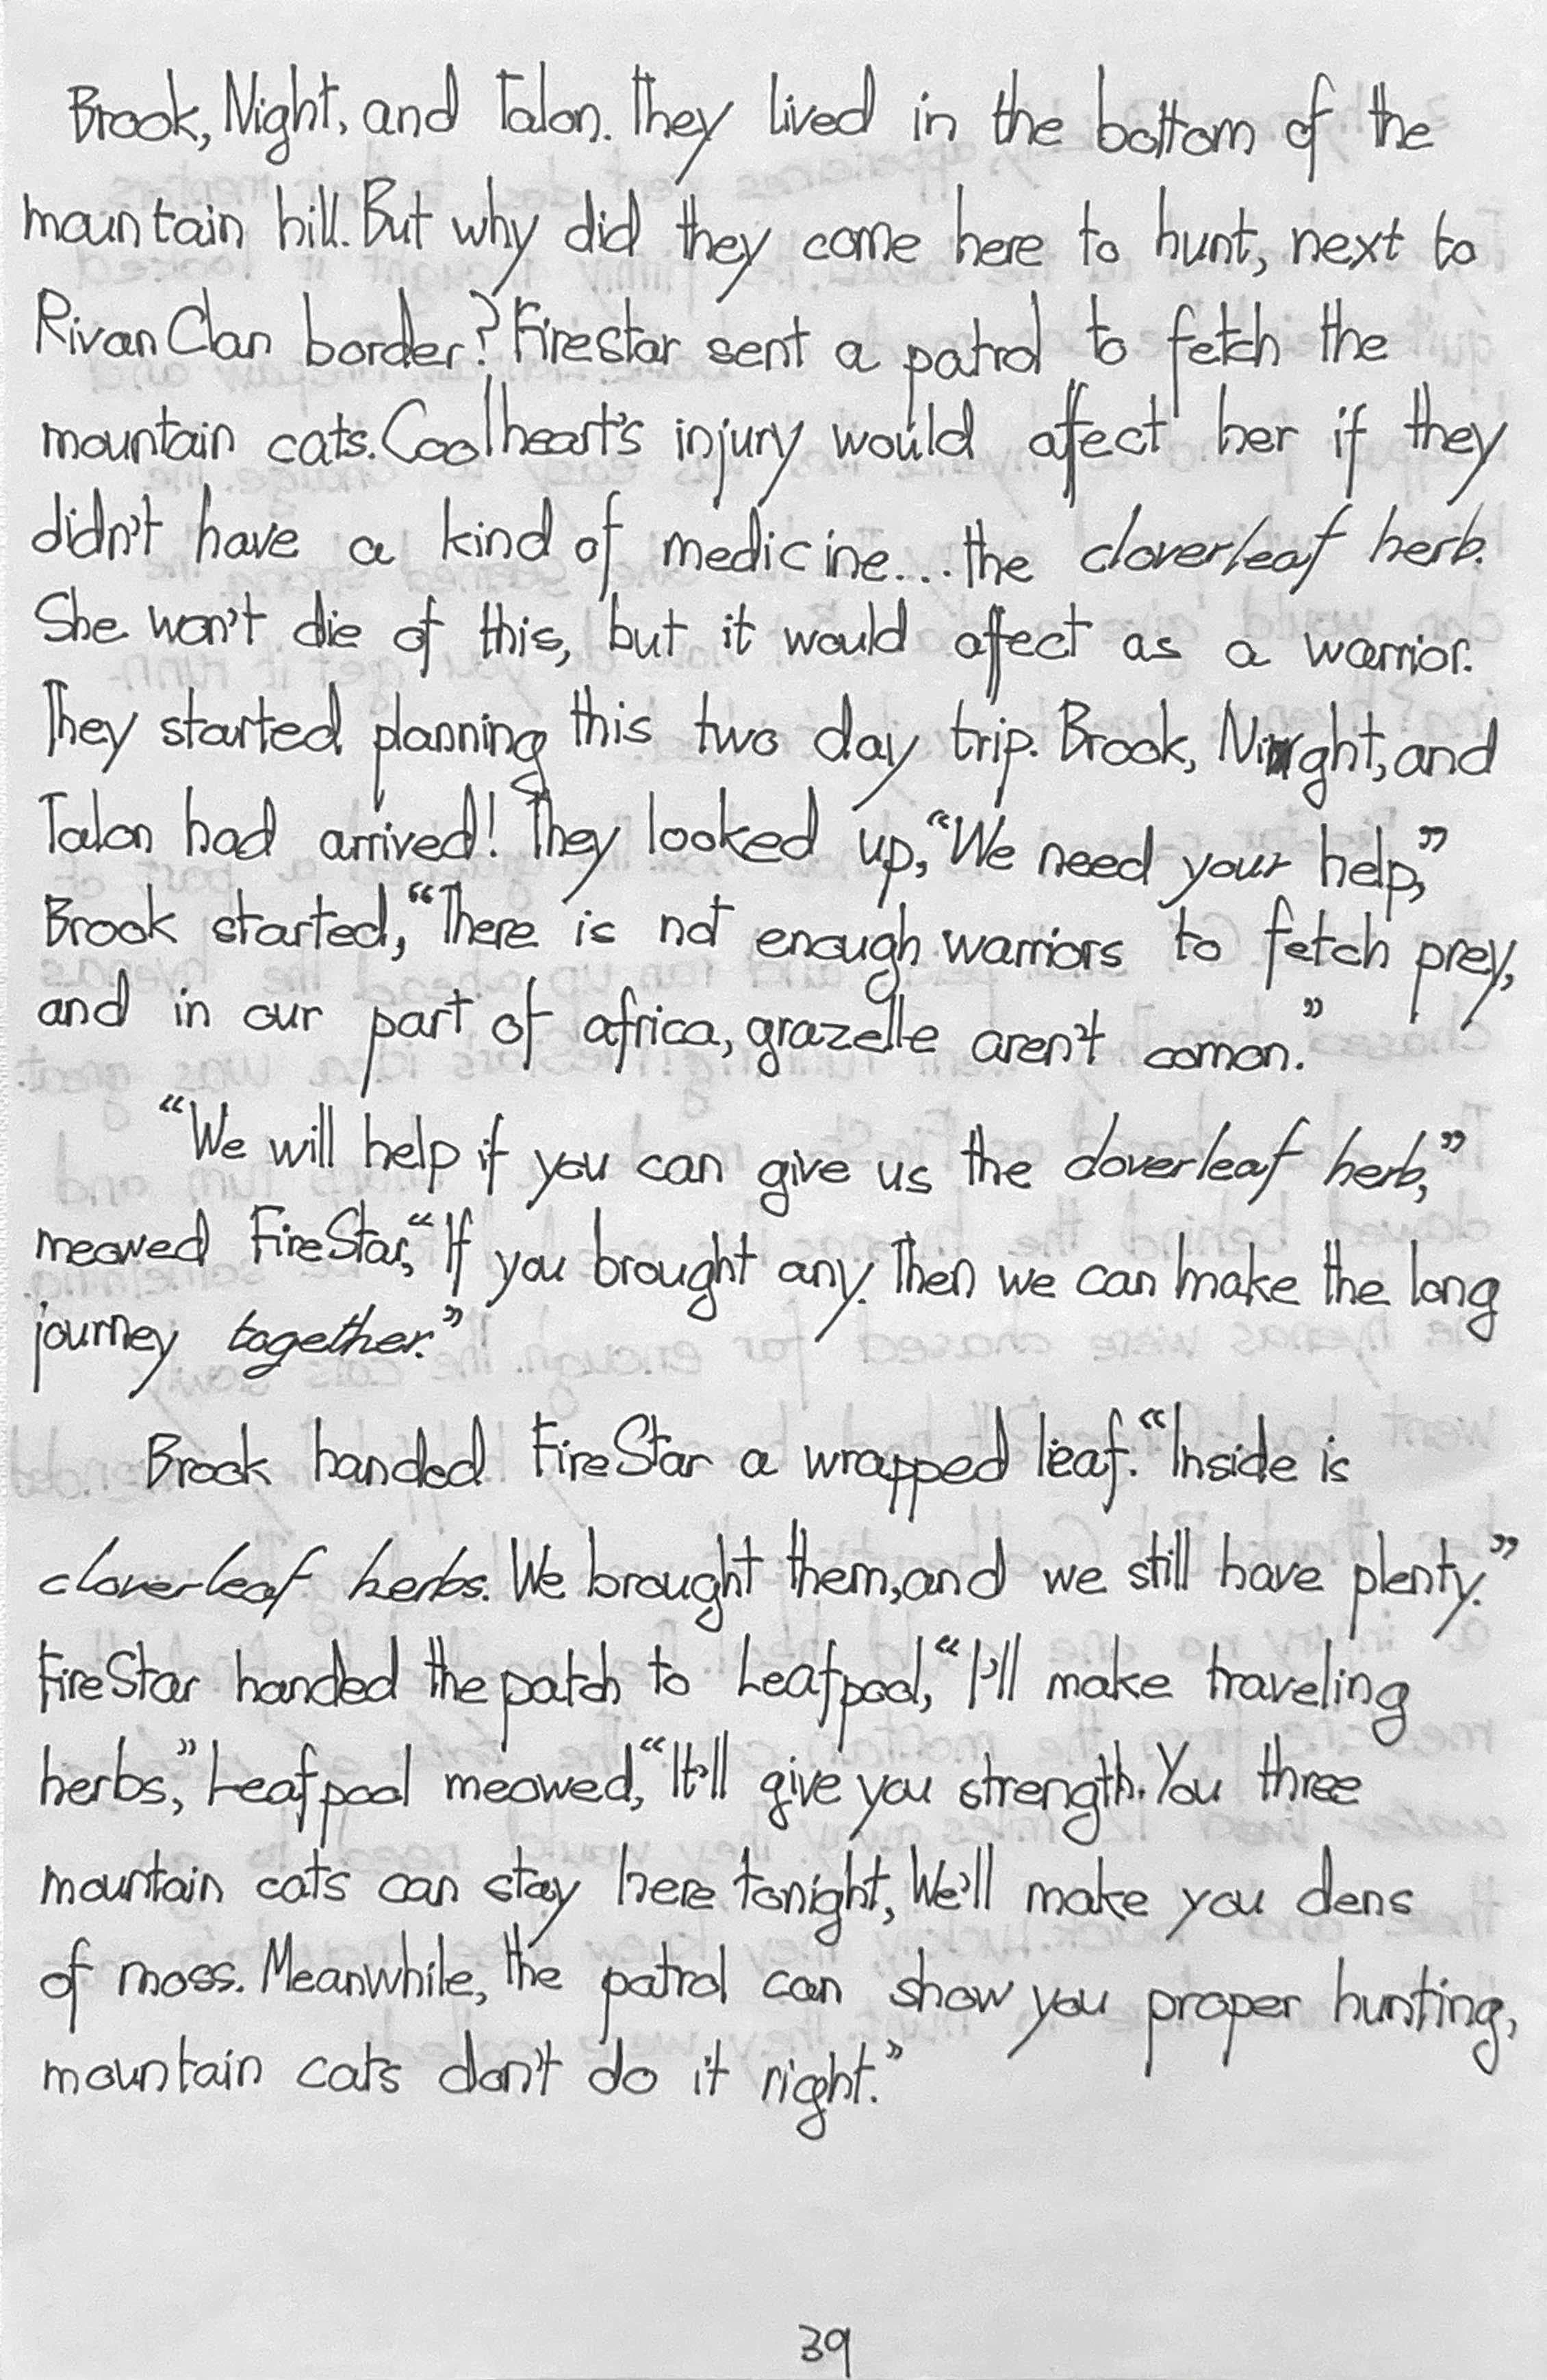 Brook, Night, and Talon. They lived in the bottom of the
mountain hill. But why did they come here to hunt, next to
RivanClan border? Firestar sent a patrol to fetch the
mountain cats. Coolheart's injury would afect her if they
didn't have a kind of medicine.... the cloverleaf herb.
She won't die of this, but it would affect as a warrior.
They started planning this two day trip. Brook, Night, and
Talon had arrived! They looked up, “We need your help,”
Brook started, “There is not enough warriors to fetch prey,
and in our part of africa, grazelle aren't comon.”
“We will help if you can give us the cloverleaf herb,”
meowed FireStar, “If you brought any. Then we can make the long
journey together.”
Brook handed FireStar a wrapped leaf. “Inside is
cloverleaf herbs. We brought them, and we still have plenty.”
FireStar handed the patch to Leafpool, “I'll make traveling
herbs,” Leafpool meowed, “It'll give you strength. You three
mountain cats can stay here tonight, We'll make you dens
of moss. Meanwhile, the patrol can show you proper hunting,
mountain cats don't do it right.”
39